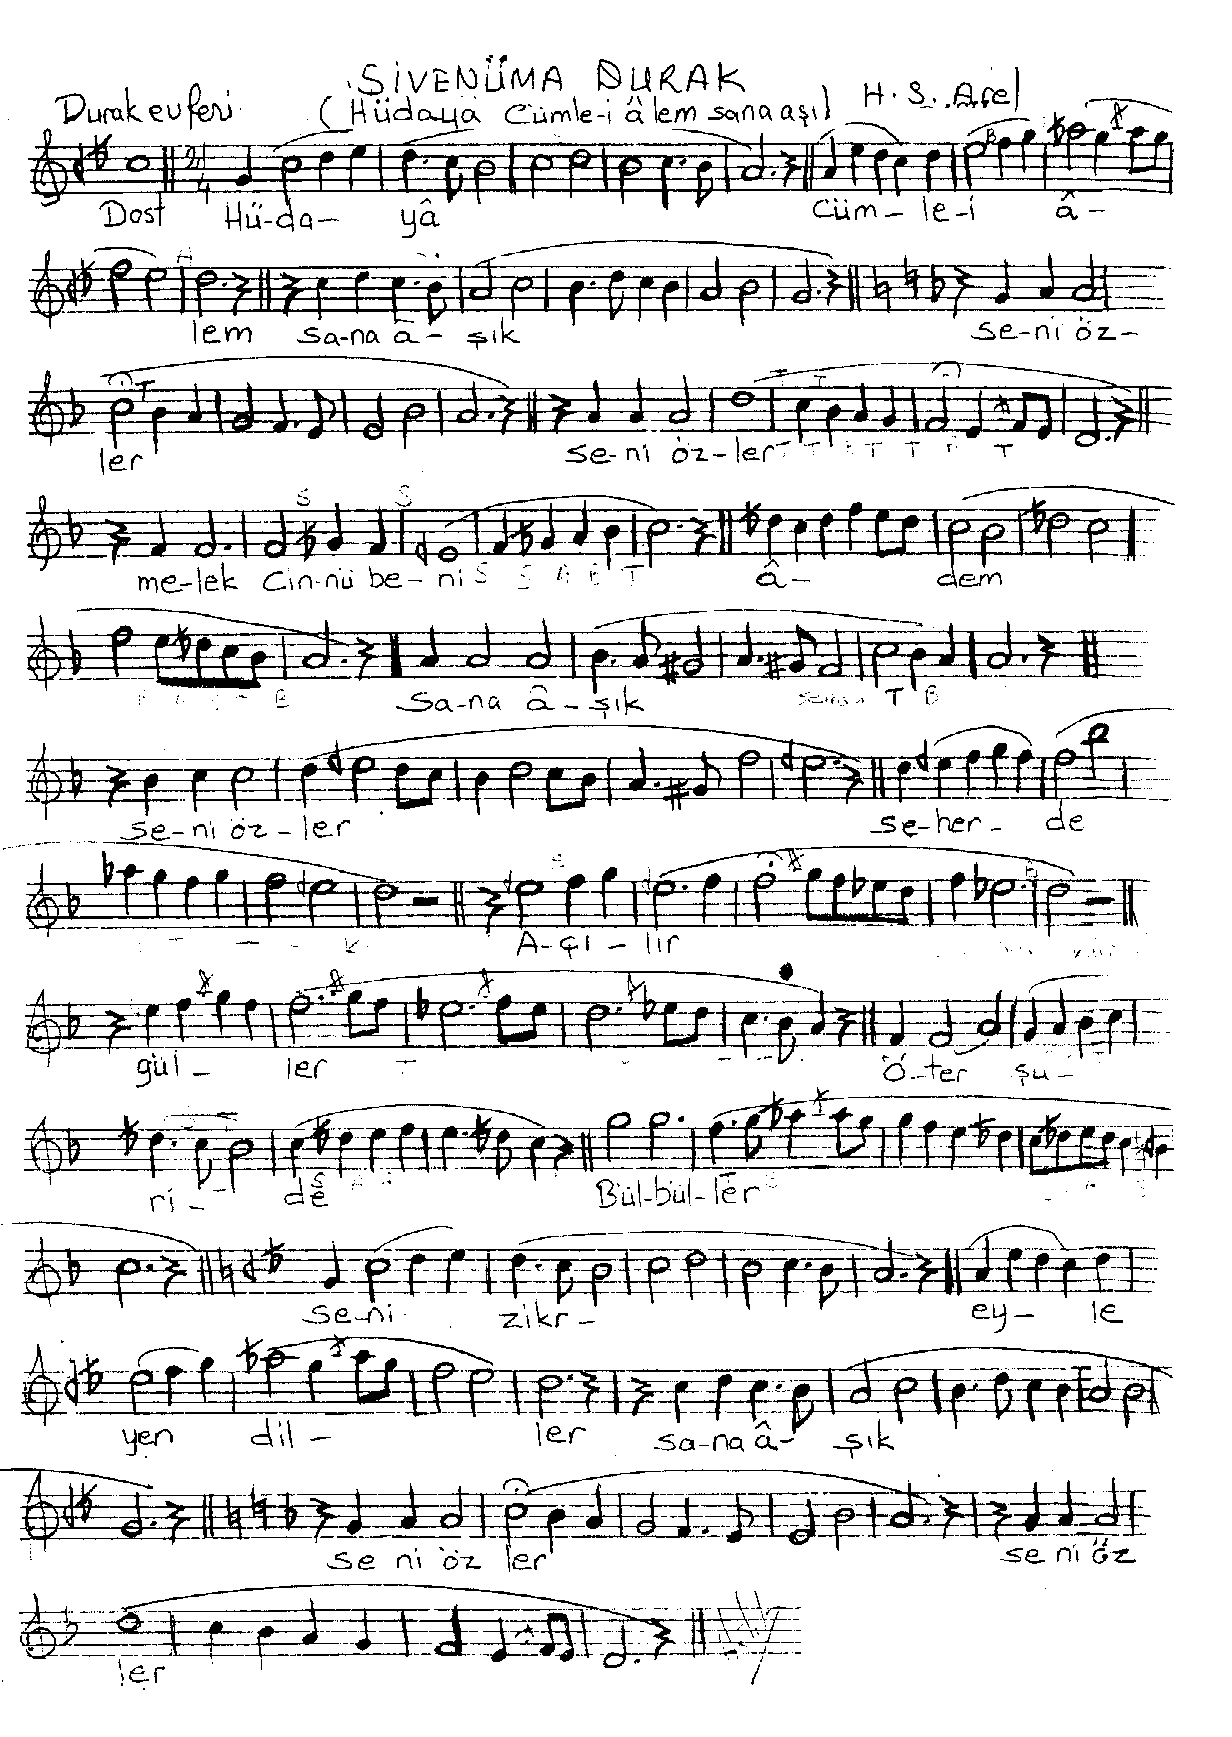 SİVENÜMA DURAK
Durak evferi (Hüdaya Cümle-i âlem sana aşı) H. S. Arel
Dost Hü-da- yâ Cüm-le-i â-
lem sa-na â-şık se-ni öz-
ler se-ni öz-ler T T B T T T T
me-lek Cin-nü be-ni S S A B T â- dem
sa-na â-şık T B
se-ni öz-ler se-her-de
A-çı-lır
gül-ler ö-ter şu-
ri-de Bül-bül-ler
se-ni zikr- ey-le
yen dil-ler sa-na â-şık
se ni öz ler se ni öz
ler